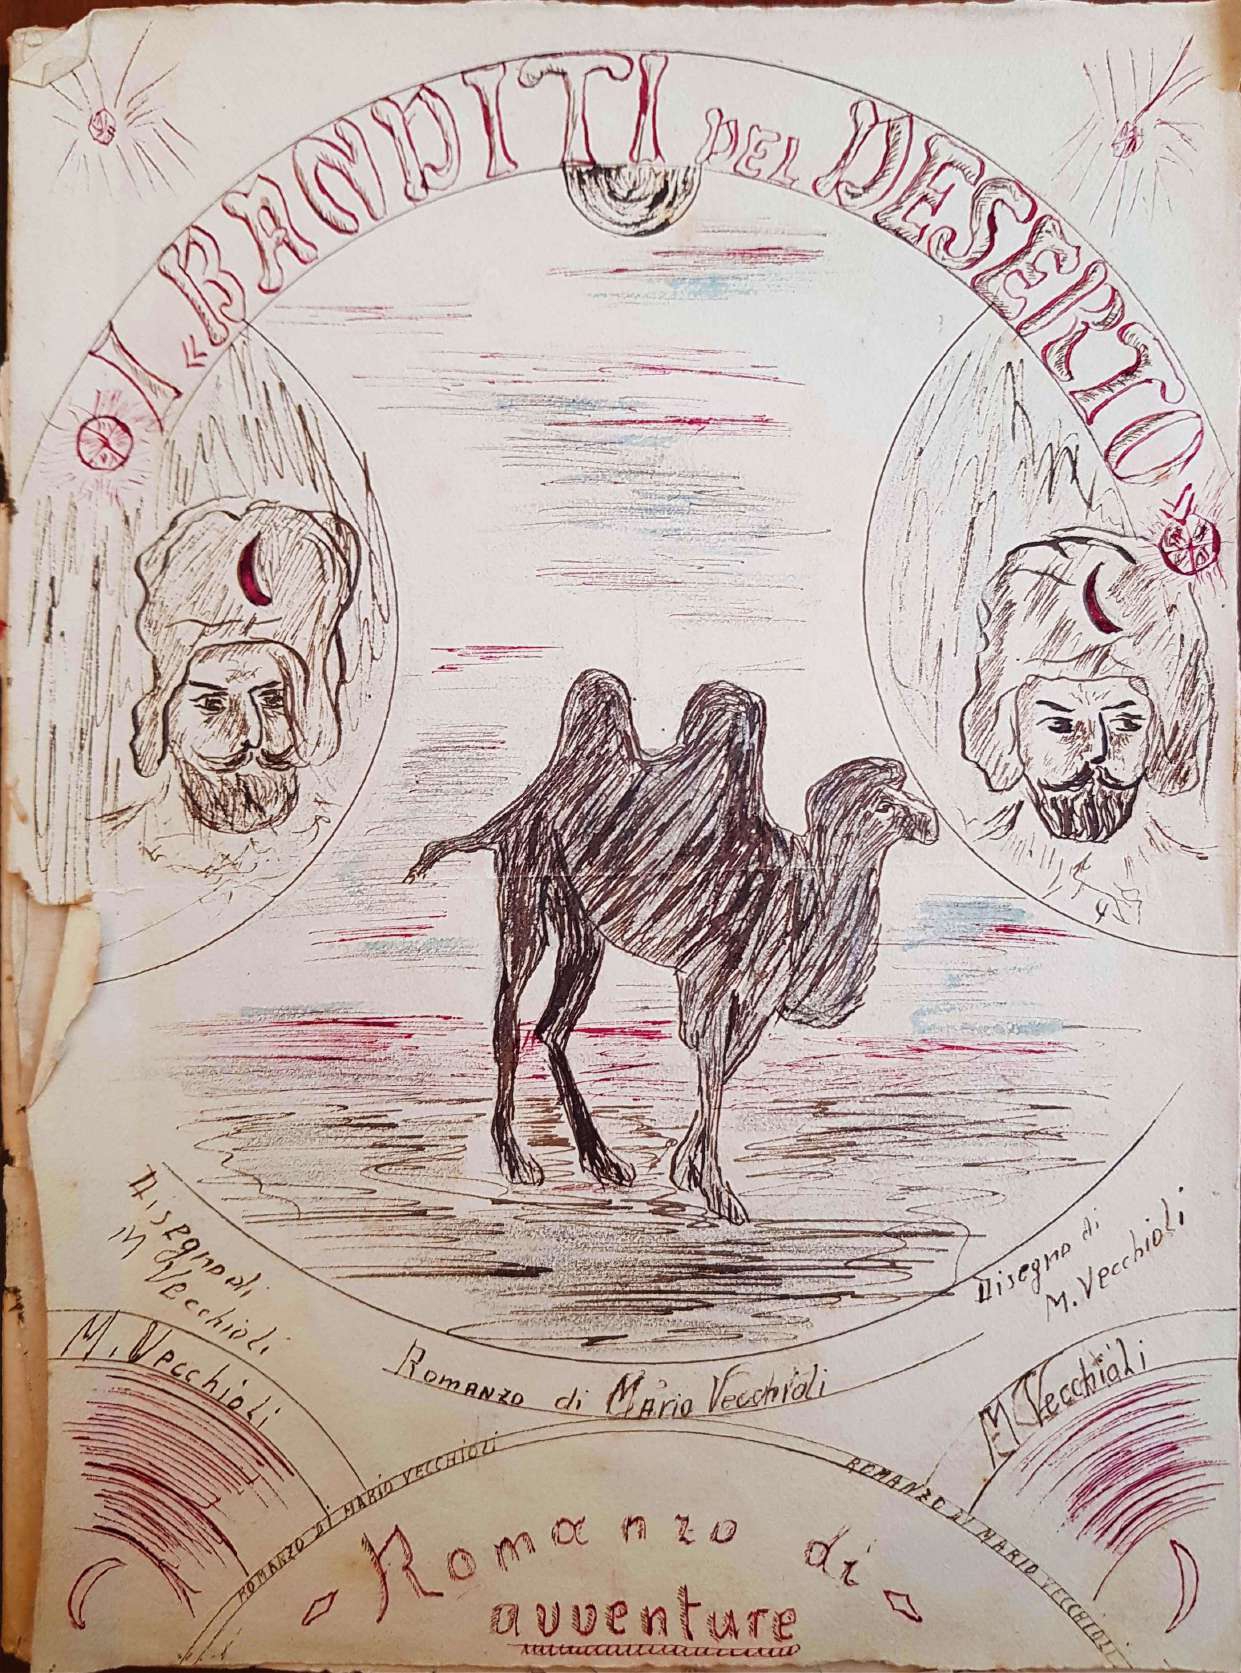 I « BANDITI DEL DESERTO »
Disegno di
M Vecchioli
Disegno di
M. Vecchioli
M. Vecchioli
M Vecchioli
Romanzo di Mario Vecchioli
ROMANZO DI MARIO VECCHIOLI
ROMANZO DI MARIO VECCHIOLI
Romanzo di
avventure